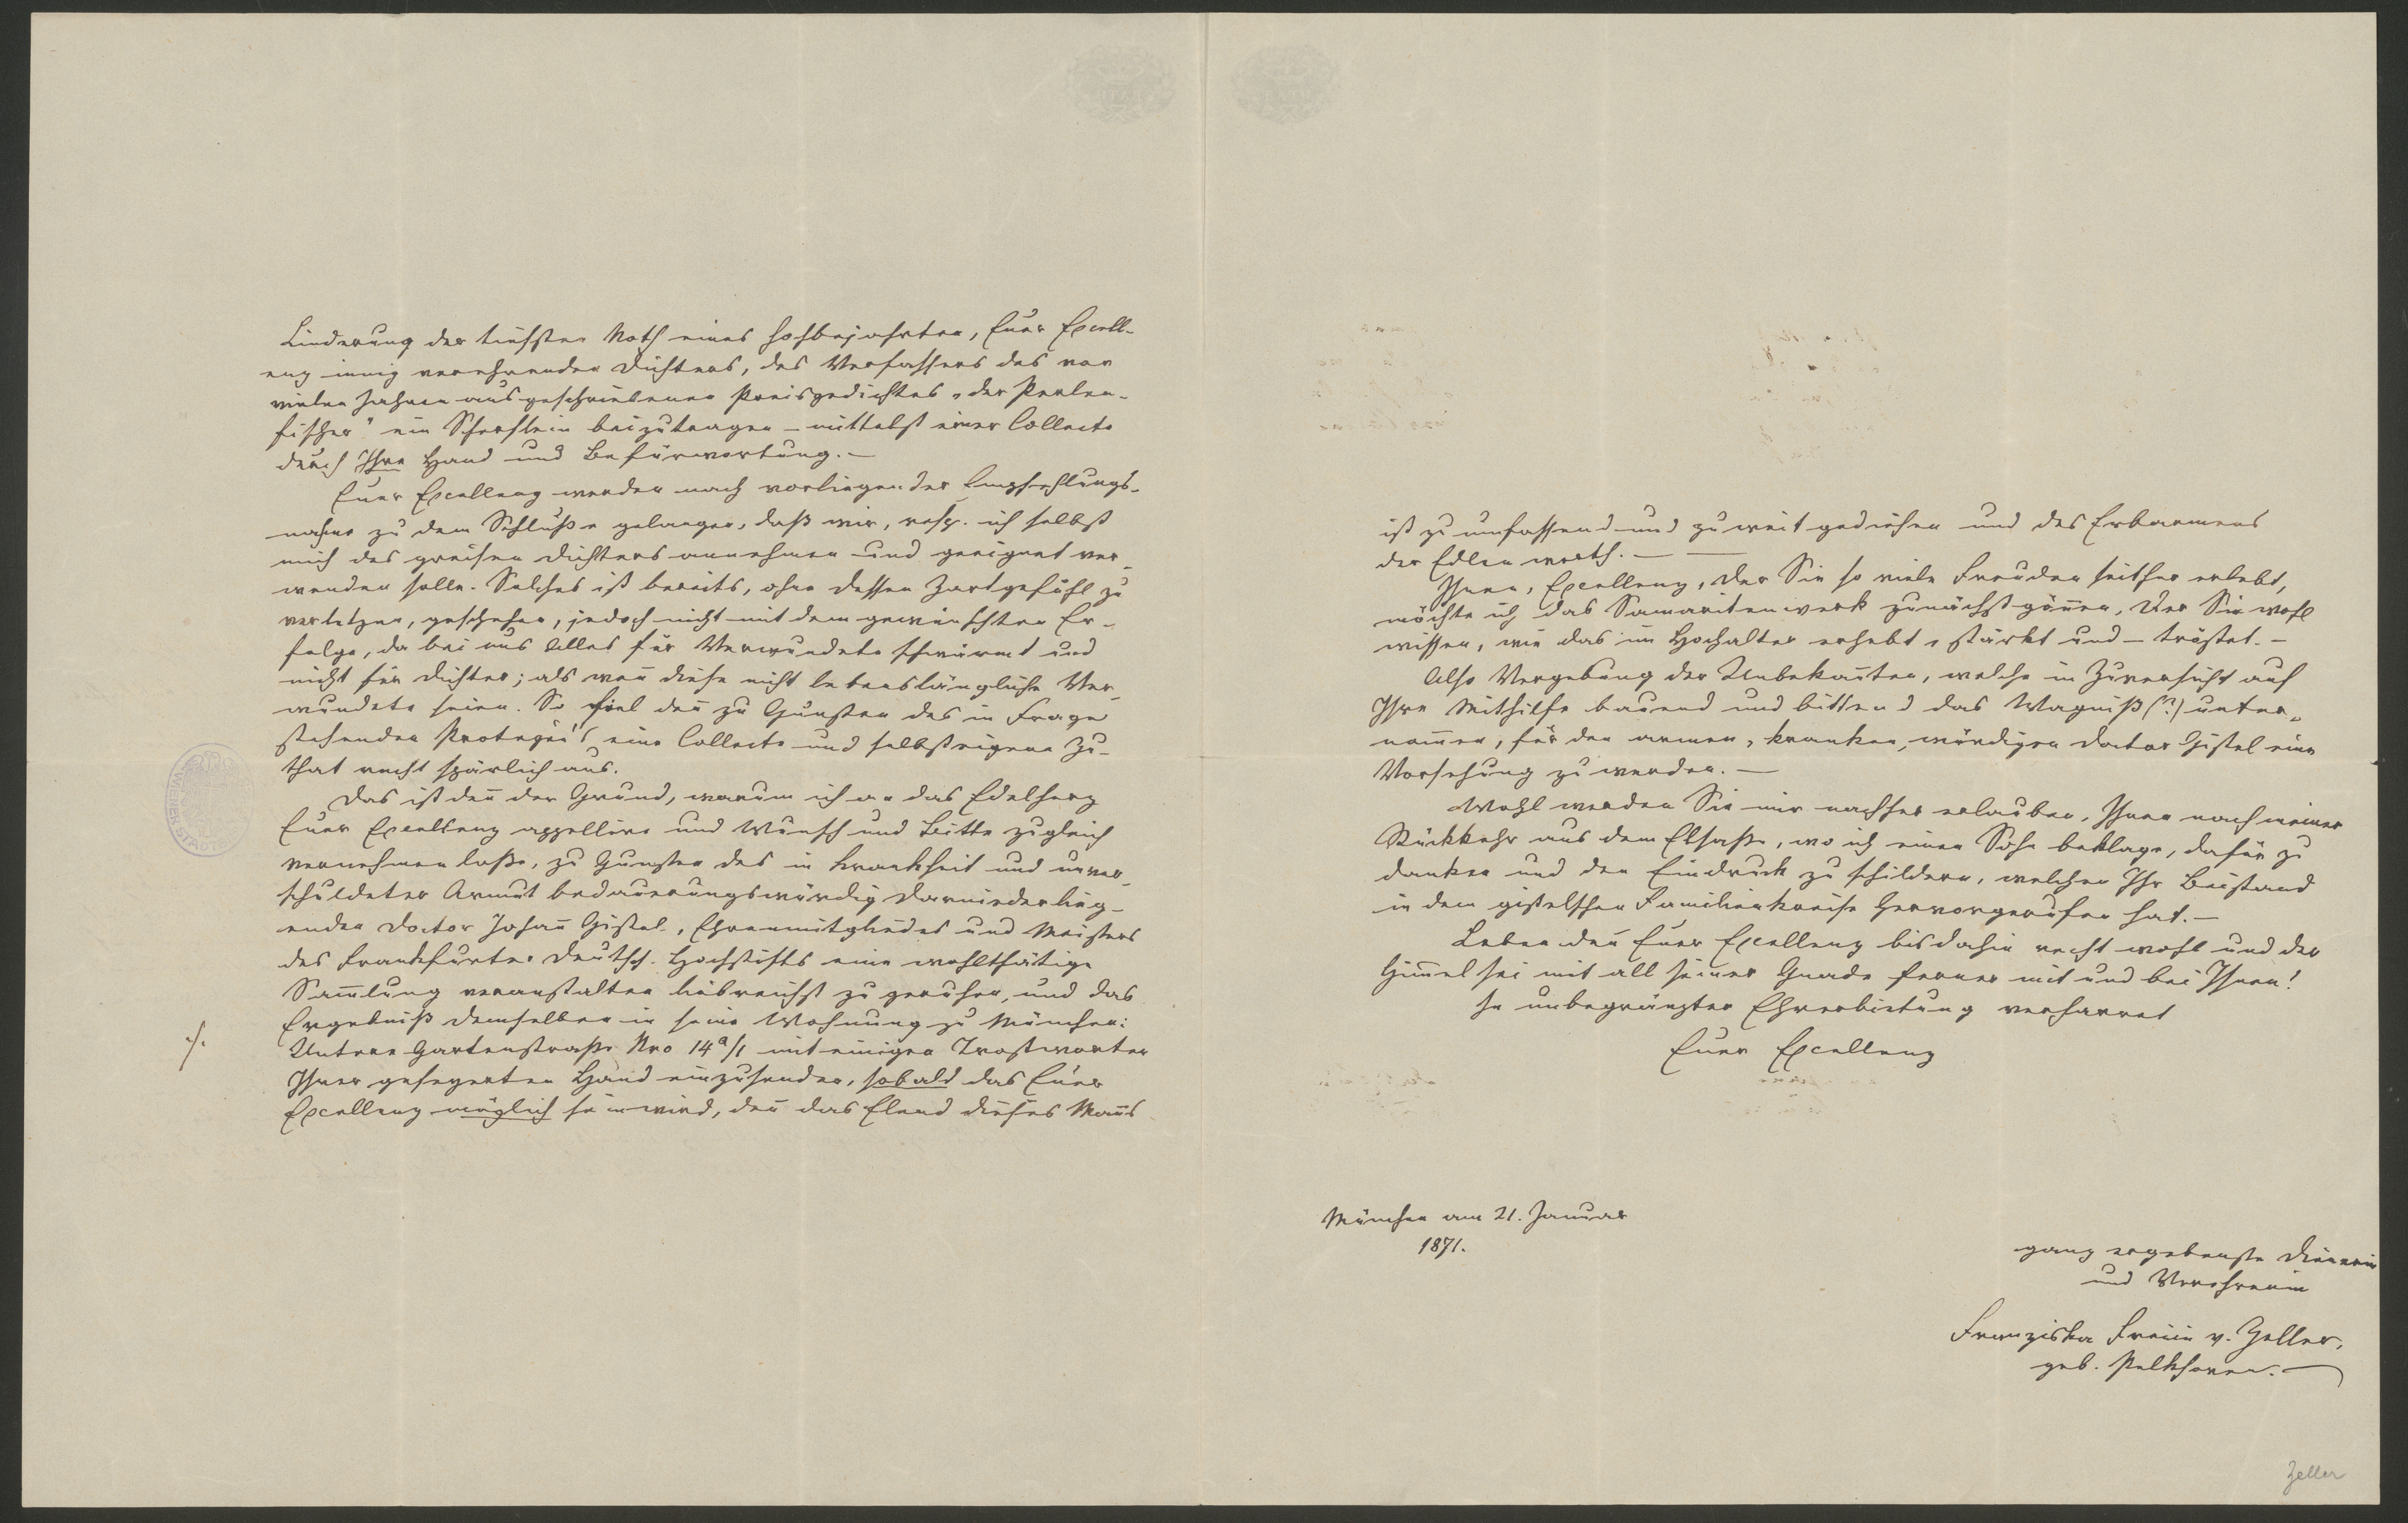 Linderung der tiefsten Noth eines hochbejahrten, Euer Excell-
enz innig verehrenden Dichters, des Verfassers des vor
vielen Jahren ausgeschriebenen Preisgedichtes „der Perlen-
fischer" ein Scherflein beizutragen – mittelst einer Collecte
durch Ihre Hand und Befürwortung. –
Euer Excellenz werden nach vorliegender Empfehlungs-
nahme zu dem Schluße gelangen, daß wir, resp. ich selbst
mich des greisen Dichters annehmen und geeignet ver-
wenden solle. Solches ist bereits, ohne dessen Zartgefühl zu
verletzen, geschehen, jedoch nicht mit dem gewünschten Er-
folge, da bei uns Alles für Verwundete schwärmt und
nicht für Dichter; als weñ diese nicht lebenslängliche Ver-
wundete seien. So fiel deñ zu Gunsten des in Frage
stehenden Protegée's eine Collecte und selbsteigene Zu-
that recht spärlich aus.
Das ist deñ der Grund, warum ich an das Edelherz
Euer Excellenz appellire und Wunsch und Bitte zugleich
vernehmen laße, zu Gunsten des in Krankheit und unver-
schuldeter Armut bedauerungswürdig darniederlieg-
enden Doctor Johañ Gistel, Ehrenmitgliedes und Meisters
des Frankfurter Deutsch. Hochstifts eine wohlthätige
Sam̃lung veranstalten liebreichst zu geruhen, und das
Ergebniß demselben in seine Wohnung zu München:
./.
Untere Gartenstraße Nro 14a/1 mit einigen Trostworten
Ihrer gesegneten Hand einzusenden, sobald das Euer
Excellenz möglich sein wird, deñ das Elend dieses Mañs
ist zu umfassend und zu weit gediehen und des Erbarmens
der Edlen werth. –
Ihnen, Excellenz, der Sie so viele Freuden seither erlebt,
möchte ich das Samaritenwerk zunächst göñen, der Sie wohl
wissen, wie das im Hochalter erhebt, stärkt und – tröstet. –
Also Vergebung der Unbekañten, welche in Zuversicht auf
Ihre Mithilfe bauend und bittend das Wagniß (?) unter-
nom̃en, für den armen, kranken, würdigen Doctor Gistel eine
Vorsehung zu werden. –
Wohl werden Sie mir nachher erlauben, Ihnen nach meiner
Rückkehr aus dem Elsaße, wo ich einen Sohn beklage, dafür zu
danken und den Eindruck zu schildern, welchen Ihr Beistand
in dem gistelschen Familienkreise hervorgerufen hat. –
Leben deñ Euer Excellenz bis dahin recht wohl und der
Him̃el sei mit all seiner Gnade ferner mit und bei Ihnen!
In unbegränzter Ehrerbietung verharret
Euer Excellenz
München am 21. Januar
1871.
ganz ergebenste Dienerin
und Verehrerin
Franziska Freiin v. Zeller,
geb. Pelkhoven.
Zeller